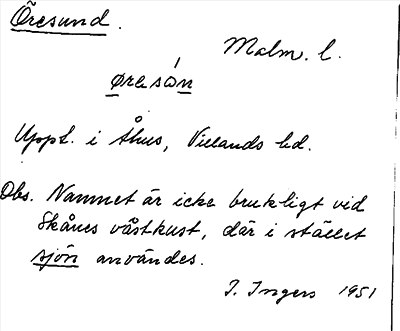 Öresund.
Malm. l.
øresón
Uppt. i Åhus, Villands hd.
Obs. Namnet är icke brukligt vid
Skånes västkust, där i stället
sjön användes.
I. Ingers 1951